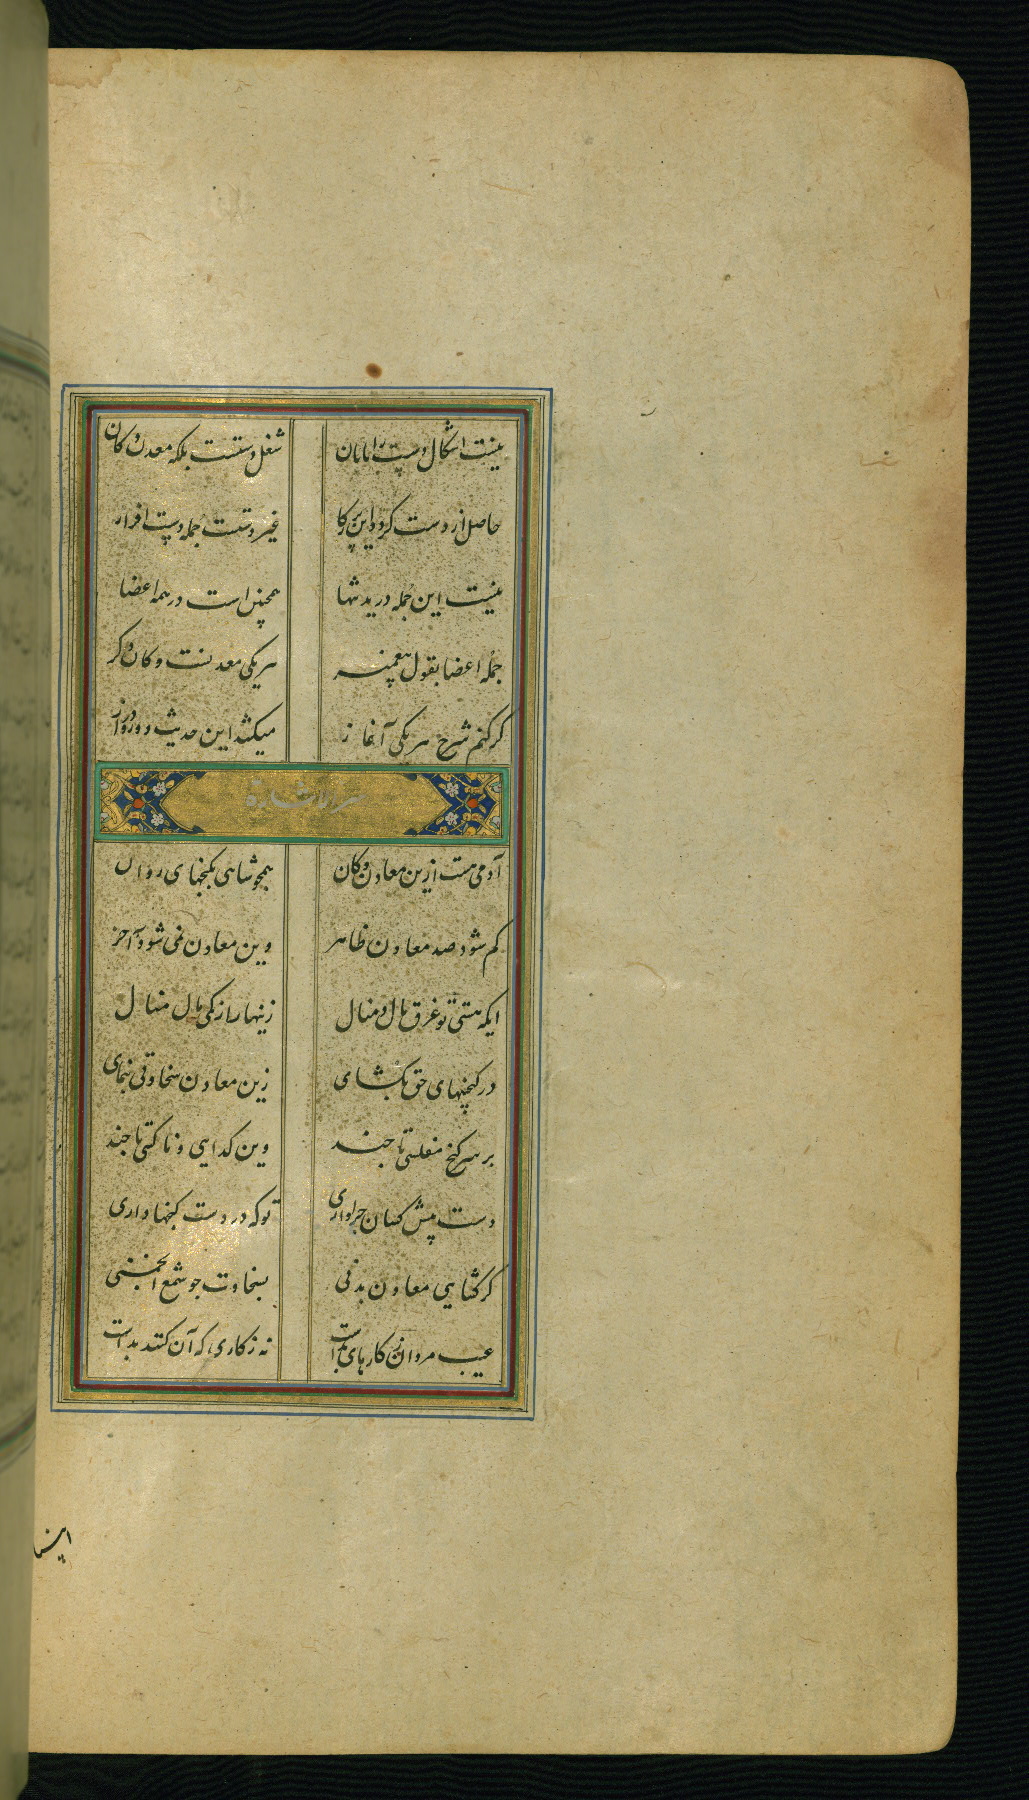 نیست اشکال دست را پایان شغل دستست بلکه معدن و کان
حاصل از دست کرد و این پرکا غیر دستت جمله دست افزار
نیست این جمله در ید تنها همچنین است در همه اعضا
جمله اعضا بقول پیغمبر هر یکی معدنست و کان دگر
گر کنم شرح هر یکی آغاز میکشد این حدیث دور و دراز
آدمی هست ازین معادن و کان همچو شاهی بگنجهای روان
کم شود صد معادن ظاهر وین معادن نمی شود آخر
ایکه هستی تو غرق مال و منال زینها ساز کی مال منال
در گنجهای حق بگشای زین معادن سخاوتی بنمای
بر سر گنج مفلسی تا چند وین گدایی و ناکسی تا چند
دست پیش کسان چرا داری تو که در دست گنجها داری
گر گشایی معادن بدنی بسخاوت چو شمع انجمنی
عیب مردان ز کارهای بدست نه ز کاری که آن کنند بدست